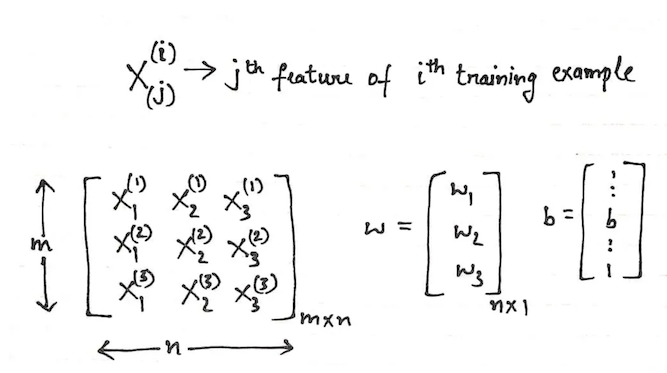 X_(j)^(i) → jth feature of ith training example
m [ X_1^(1) X_2^(1) X_3^(1)
X_1^(2) X_2^(2) X_3^(2)
X_1^(3) X_2^(3) X_3^(3) ] m×n
n
w = [ w_1
w_2
w_3 ] n×1
b = [ ⋮
b
⋮ ]